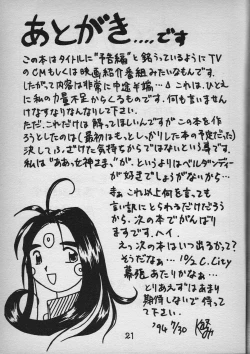 あとがき....です
この本はタイトルに"予告編"と銘うっているようにTV
のCMもしくは映画紹介番組みたいなもんです。
したがって内容は非常に中途半端…。これは、ひとえ
に私の力量不足からくるものです。何も言いません
けなすなりなんなりして下さい。
ただ、これだけは解ってほしいんですがこの本を作
ろうとしたのは(最初はもっとしっかりした本の予定だった)
決してふざけた気持ちからではないという事です。
私は"ああっ女神さまっ"が、というよりはベルダンディー
が好きでしょうがないから…。
まぁこれ以上何を言っても
言い訳にとられるだけだろう
から、次の本でがんばり
ますです。ヘイ。
えっ次の本はいつ出るかって?
そうだなぁ…10/2 C.City
幕張あたりかなぁ…
とりあえずはあまり
期待しないで待って
下さい。
'94 7/30
21